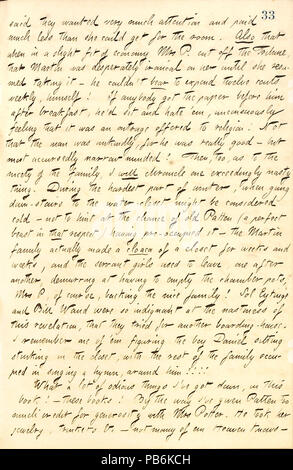 33
said they wanted very much attention and paid
much less than she could get for the room. Also that
when in a slight fit of economy Mrs P. cut off the Tribune,
that Martin was desperately ironical on her until she resumed
taking it — he couldn't bear to expend twelve cents
weekly, himself! If anybody got the paper before him
after breakfast, he'd sit and hate 'em, unconsciously
feeling that it was an outrage offered to religion. Not
that the man was unkindly, for he was really good — but
most accursedly narrow minded! Then, too, as to the
nicety of the family, I will chronicle one exceedingly nasty
thing. During the hardest part of winter, when going
down-stairs to the water closet might be considered
cold — not to hint at the chance of old Patten (a perfect
beast in that respect) having pre-occupied it — the Martin
family actually made a cloaca of a closet for weeks and
weeks, and the servant girls used to leave one after
another, demurring at having to empty the chamber pots,
Mrs P, of course, backing the nice family! Sol Eytinge
and Bill Waud were so indignant at the nastiness of
this revelation, that they tried for another boarding-house.
I remember one of 'em figuring the boy Daniel sitting
stinking in the closet, with the rest of the family occupied
in singing a hymn, around him!!!!
What a lot of odious things I've got down, in this
book! — these books! By the way I've given Patten too
much credit for generosity with Mrs Potter. He took her
jewelry, trinkets &c — not many of 'em Heaven knows —
alamy
Image ID: PB6KCH
www.alamy.com